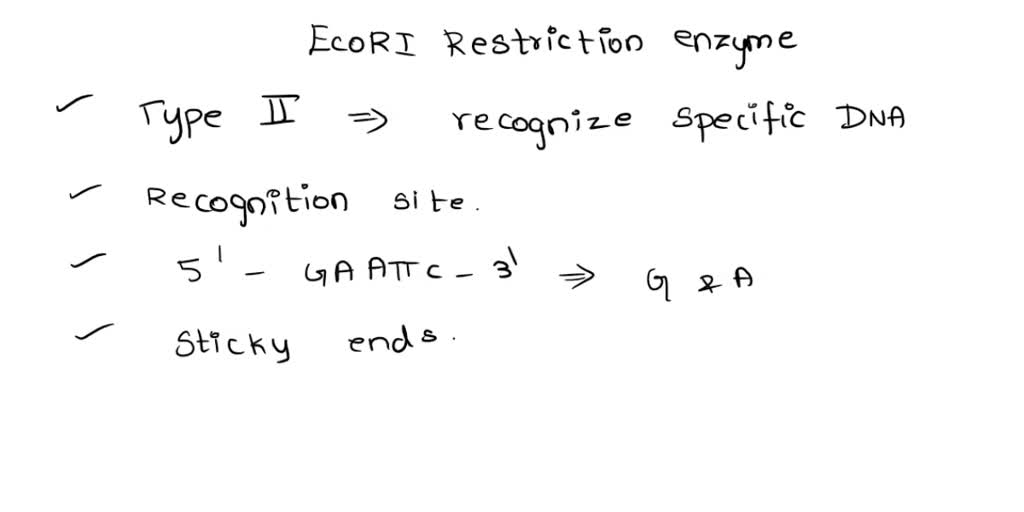 EcoRI Restriction enzyme
✓ Type II ⇒ recognize specific DNA
✓ Recognition site.
✓ 5' - GAATTC - 3' ⇒ G & A
✓ Sticky ends.